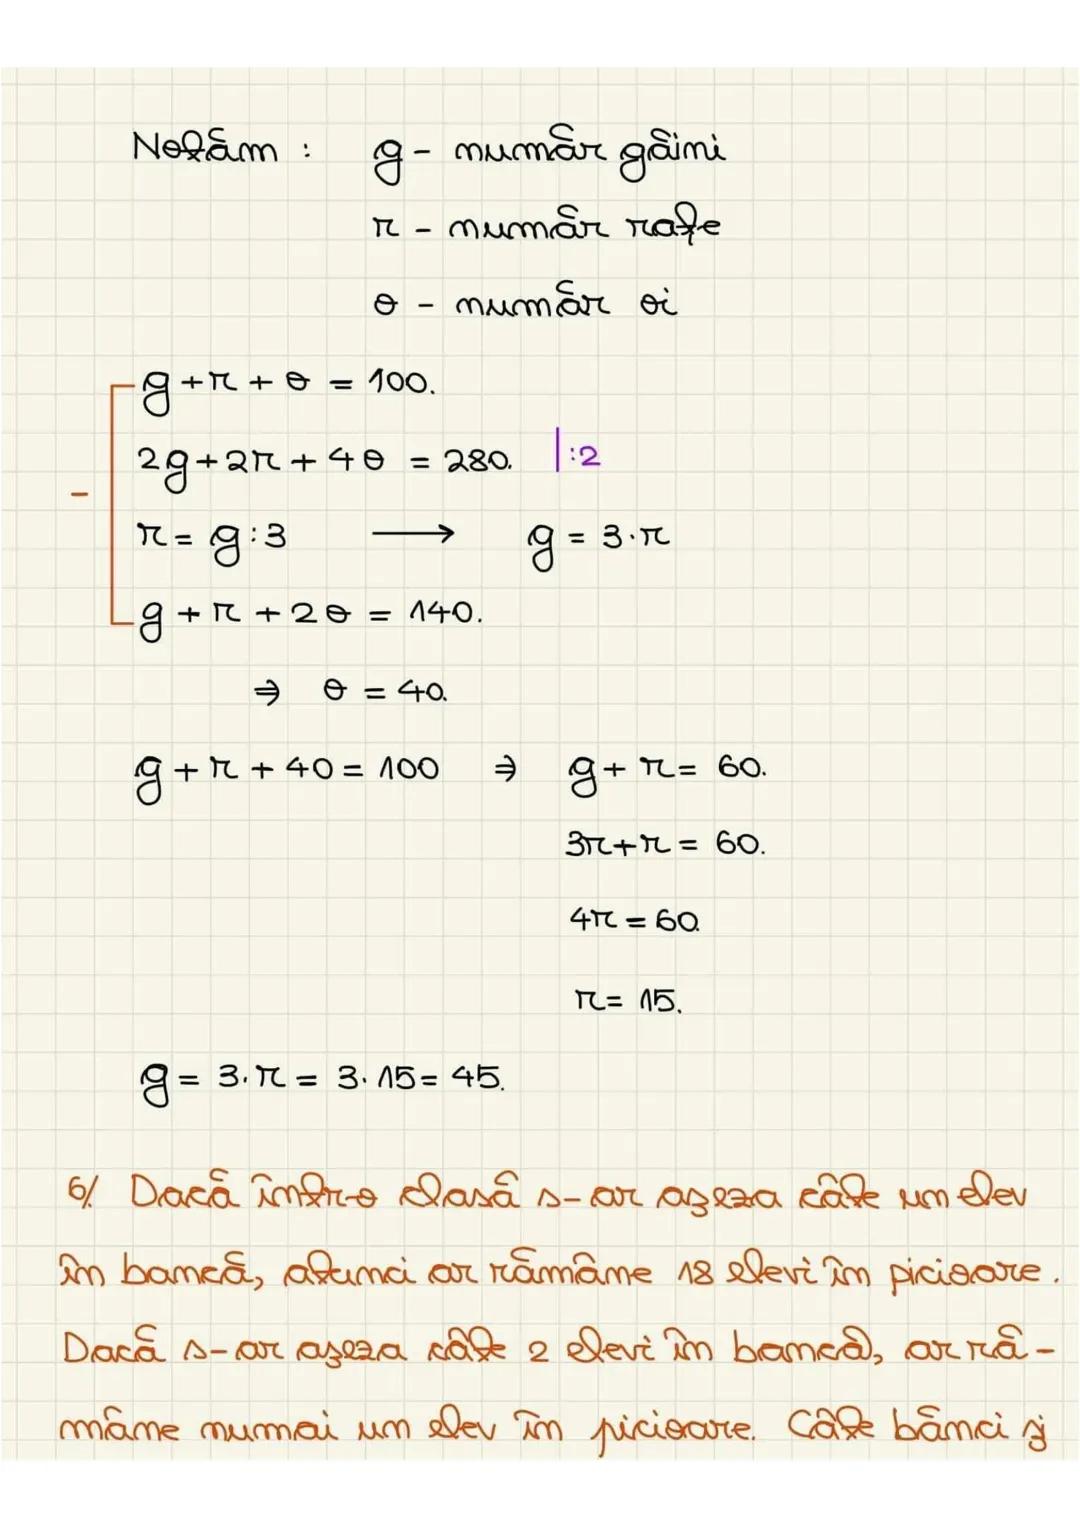 Notăm : g - număr găini
r - număr rațe
o - număr oi
g + r + o = 100.
2g + 2r + 4o = 280. |:2
-
r = g:3 ⟶ g = 3·r
g + r + 2o = 140.
⇒ o = 40.
g + r + 40 = 100 ⇒ g + r = 60.
3r + r = 60.
4r = 60.
r = 15.
g = 3·r = 3·15 = 45.
6/. Dacă într-o clasă s-ar așeza câte un elev
în bancă, atunci ar rămâne 18 elevi în picioare.
Dacă s-ar așeza câte 2 elevi în bancă, ar ră-
mâne numai un elev în picioare. Câte bănci și